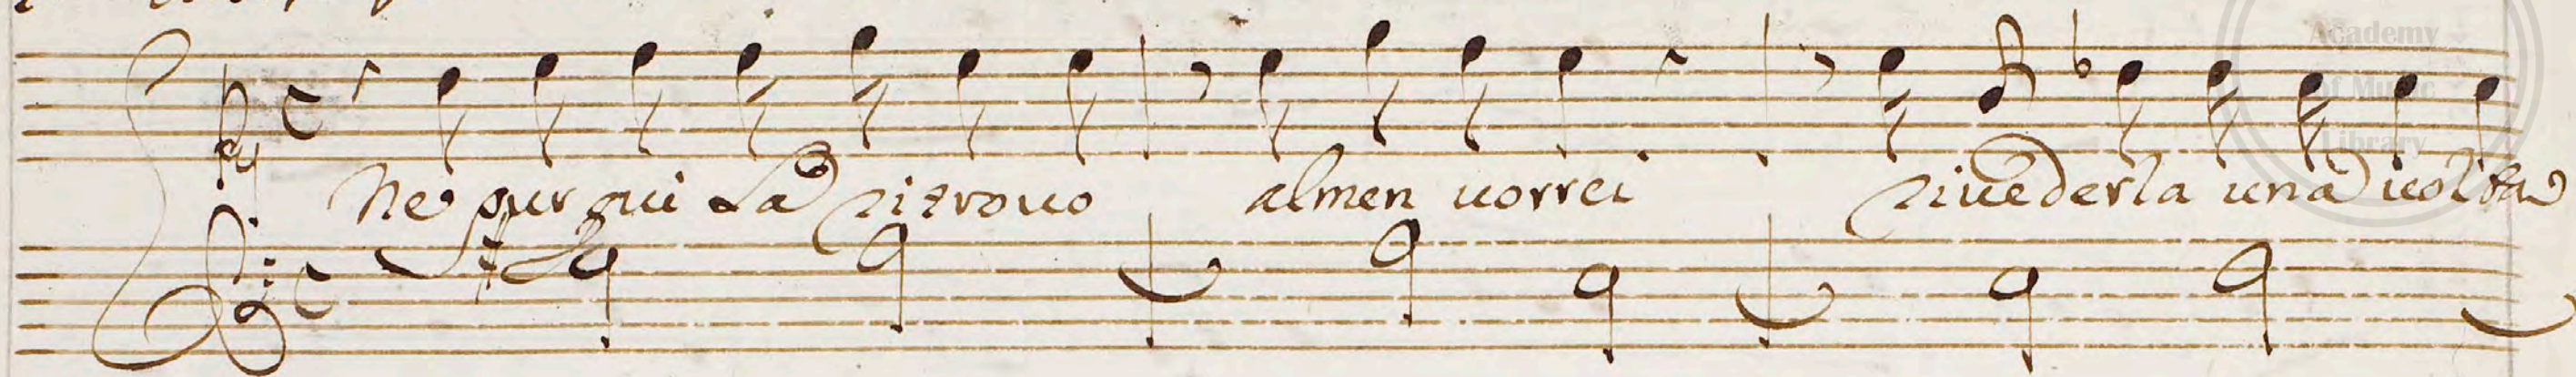 Academy
of Music
Library
Ne pur qui La ritrouo almen uorrei riuederla una uolta